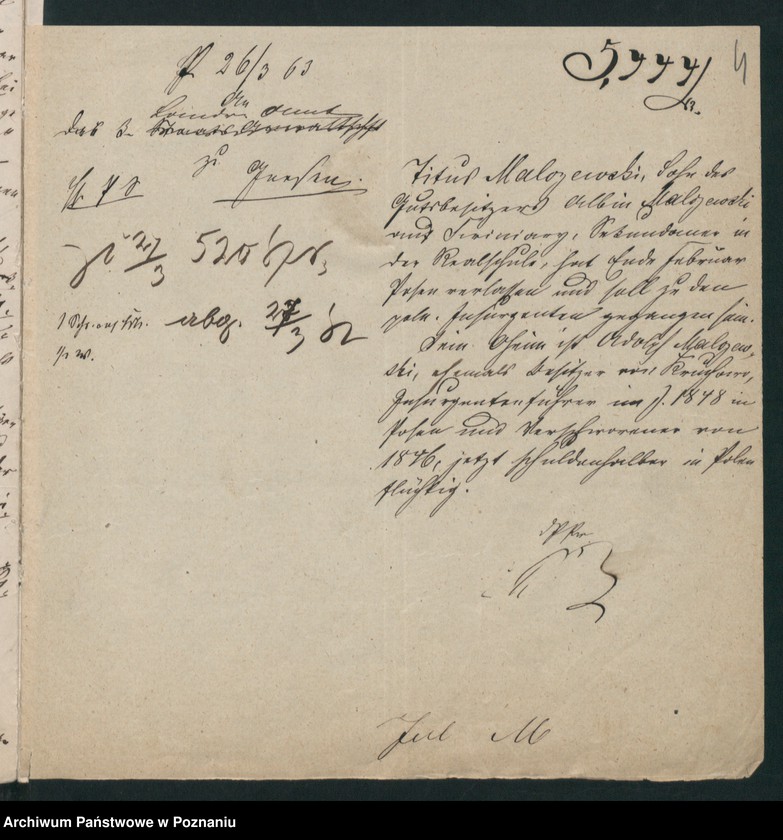 P 26/3 63
5,444/
4
An
das K. Landraths Amt
zu
Gnesen.
27/3
abg. 27/3
Titus Malczewski, Sohn des
Gutsbesitzers Albin Malczewski
aus Swiniary, Sekundaner in
der Realschule, hat Ende Februar
Posen verlassen und soll zu den
poln. Insurgenten gegangen sein.
Sein Oheim ist Adolph Malczew-
ski, ehemals Besitzer von Kruchowo,
Insurgentenführer im J. 1848 in
Posen und Verschworener von
1846, jetzt schuldenhalber in Polen
flüchtig.